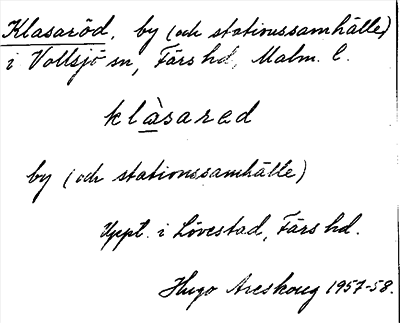 Klasaröd, by (och stationssamhälle)
i Vollsjö sn, Färs hd, Malm. l.
klàsared
by (och stationssamhälle)
Uppt. i Lövestad, Färs hd.
Hugo Areskoug 1957-58.